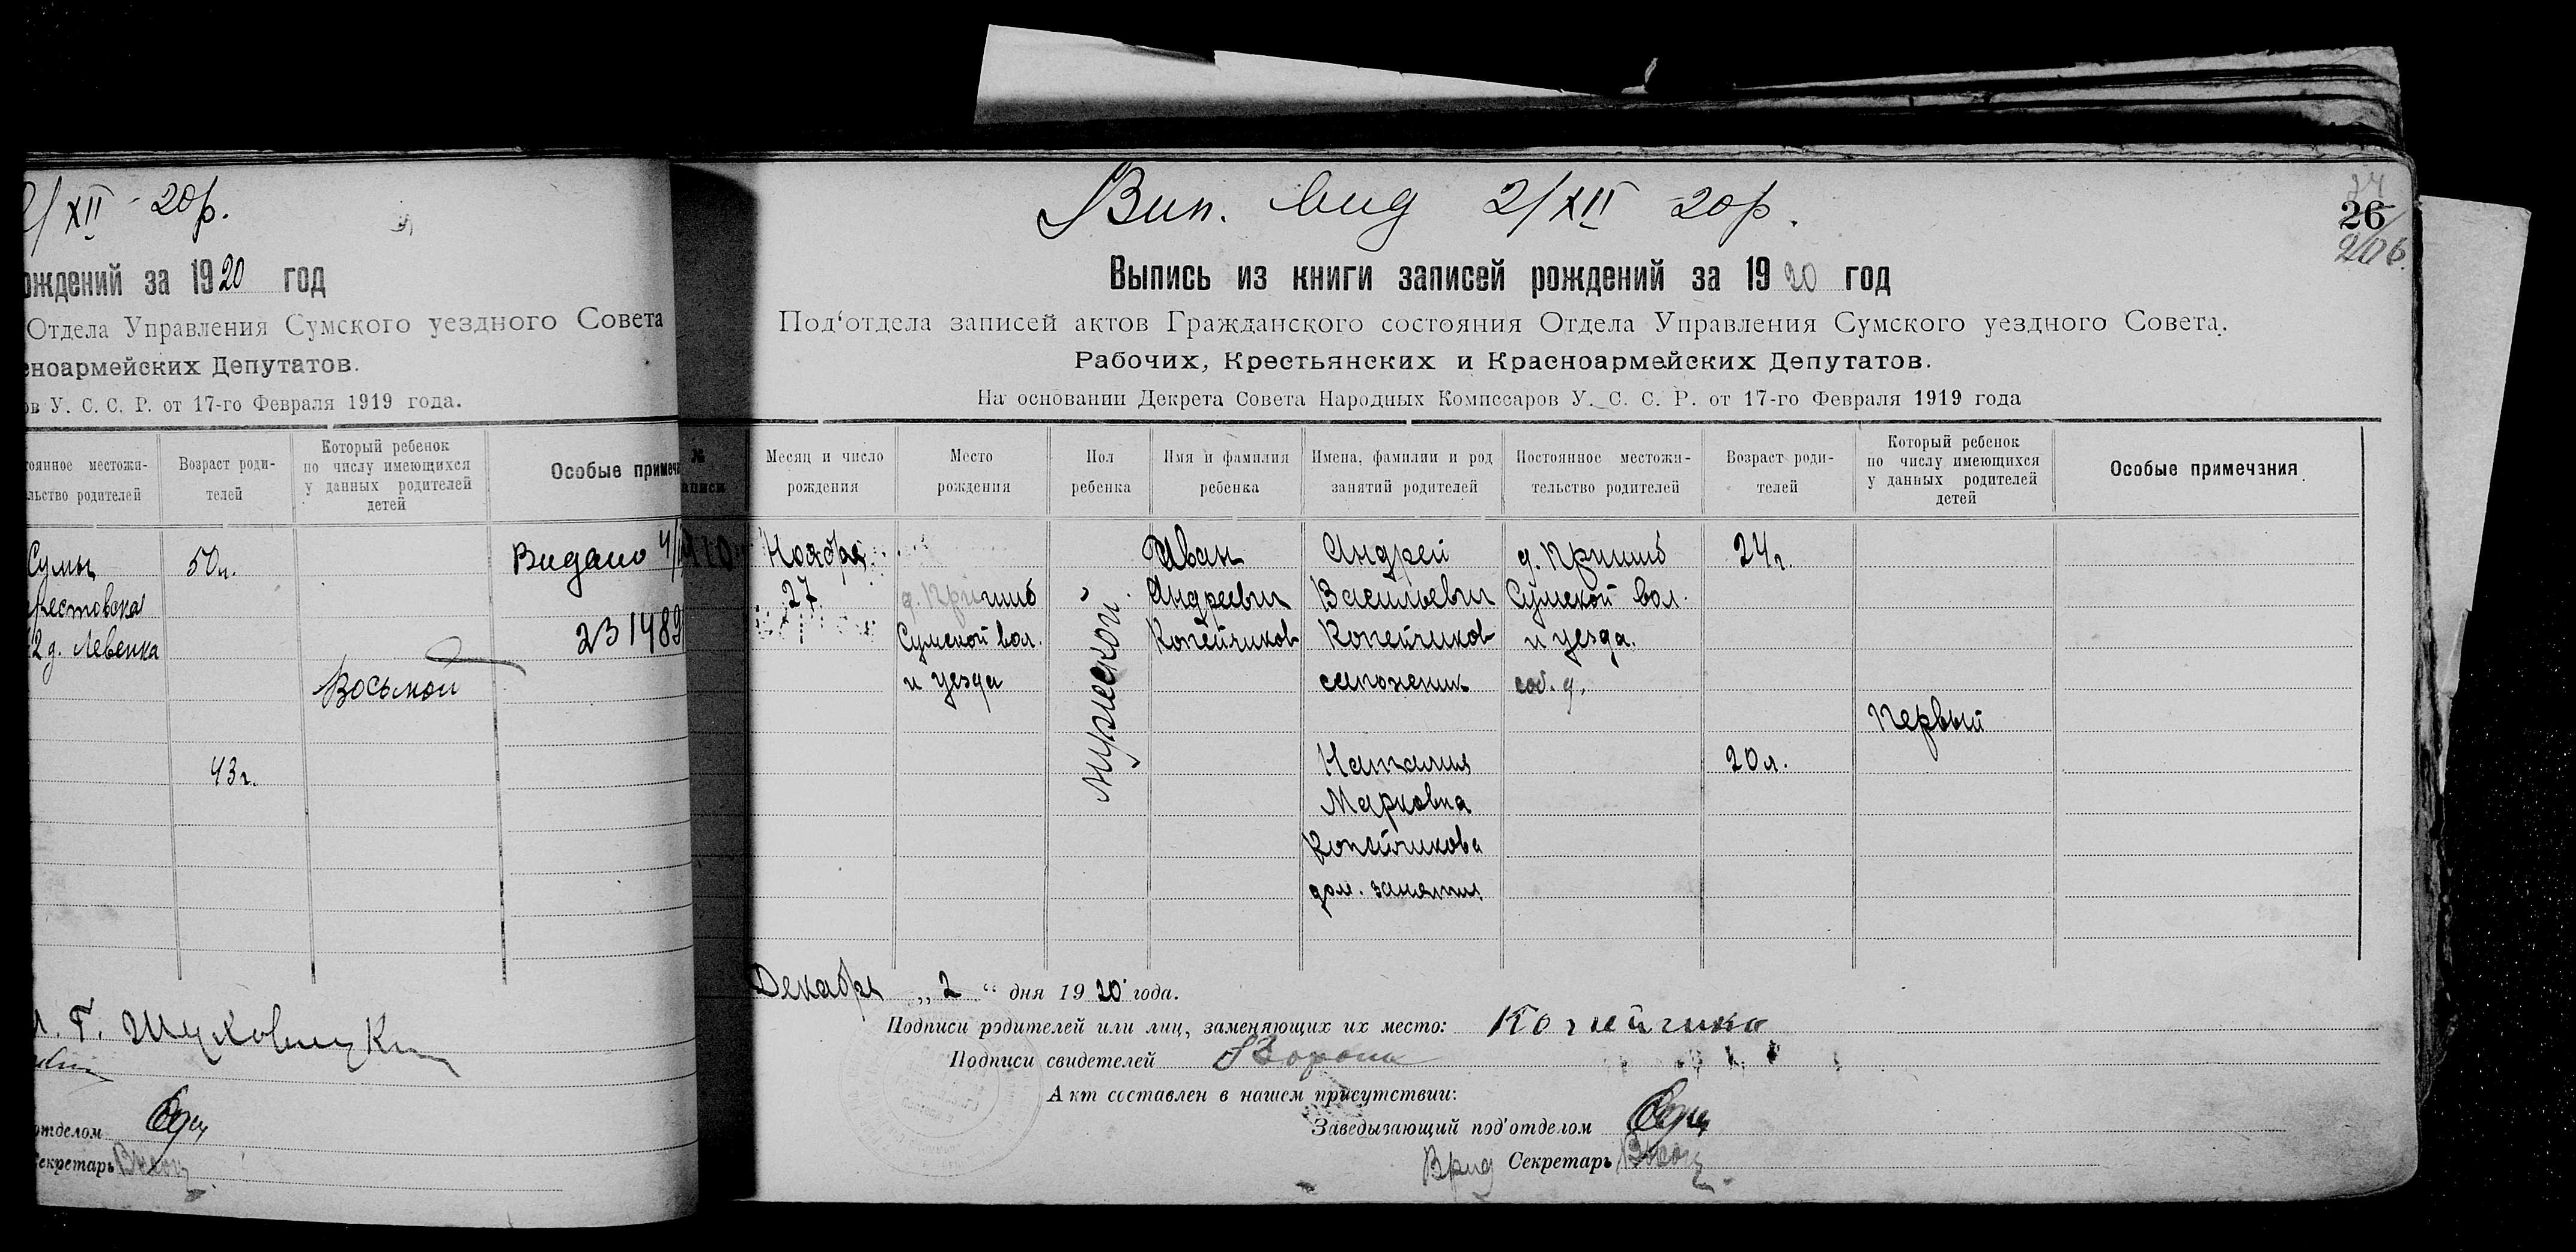 /XII - 20р.
ождений за 1920 год
Отдела Управления Сумского уездного Совета
еноармейских Депутатов.
ов У. С. С. Р. от 17-го Февраля 1919 года.
тоянное местожи-
льство родителей
Возраст роди-
телей
Который ребенок
по числу имеющихся
у данных родителей
детей
Особые примеча
Сумы
50л.
Видано
д. Левенка
231489
Восьмой
43г.
отделом
Секретарь
Вип. вид 2/XII 20р.
26
206
Выпись из книги записей рождений за 1920 год
Под'отдела записей актов Гражданского состояния Отдела Управления Сумского уездного Совета.
Рабочих, Крестьянских и Красноармейских Депутатов.
На основании Декрета Совета Народных Комиссаров У. С. С. Р. от 17-го Февраля 1919 года
№
аписи
Месяц и число
рождения
Место
рождения
Пол
ребенка
Имя и фамилия
ребенка
Имена, фамилии и род
занятий родителей
Постоянное местожи-
тельство родителей
Возраст роди-
телей
Который ребенок
по числу имеющихся
у данных родителей
детей
Особые примечания
Ноября
27
д. Пришиб
Сумской вол.
и уезда
мужеской
Иван
Андреевич
Копейчиков
Андрей
Васильевич
Копейчиков
сапожник
Наталия
Марковна
Копейчикова
дом. занятия
д. Пришиб
Сумской вол.
и уезда.
соб. д.
24г.
20л.
Первый
Декабря „ 2 “ дня 1920 года.
Подписи родителей или лиц, заменяющих их место:
Подписи свидетелей
Акт составлен в нашем присутствии:
Заведызающий под'отделом
Врид Секретарь